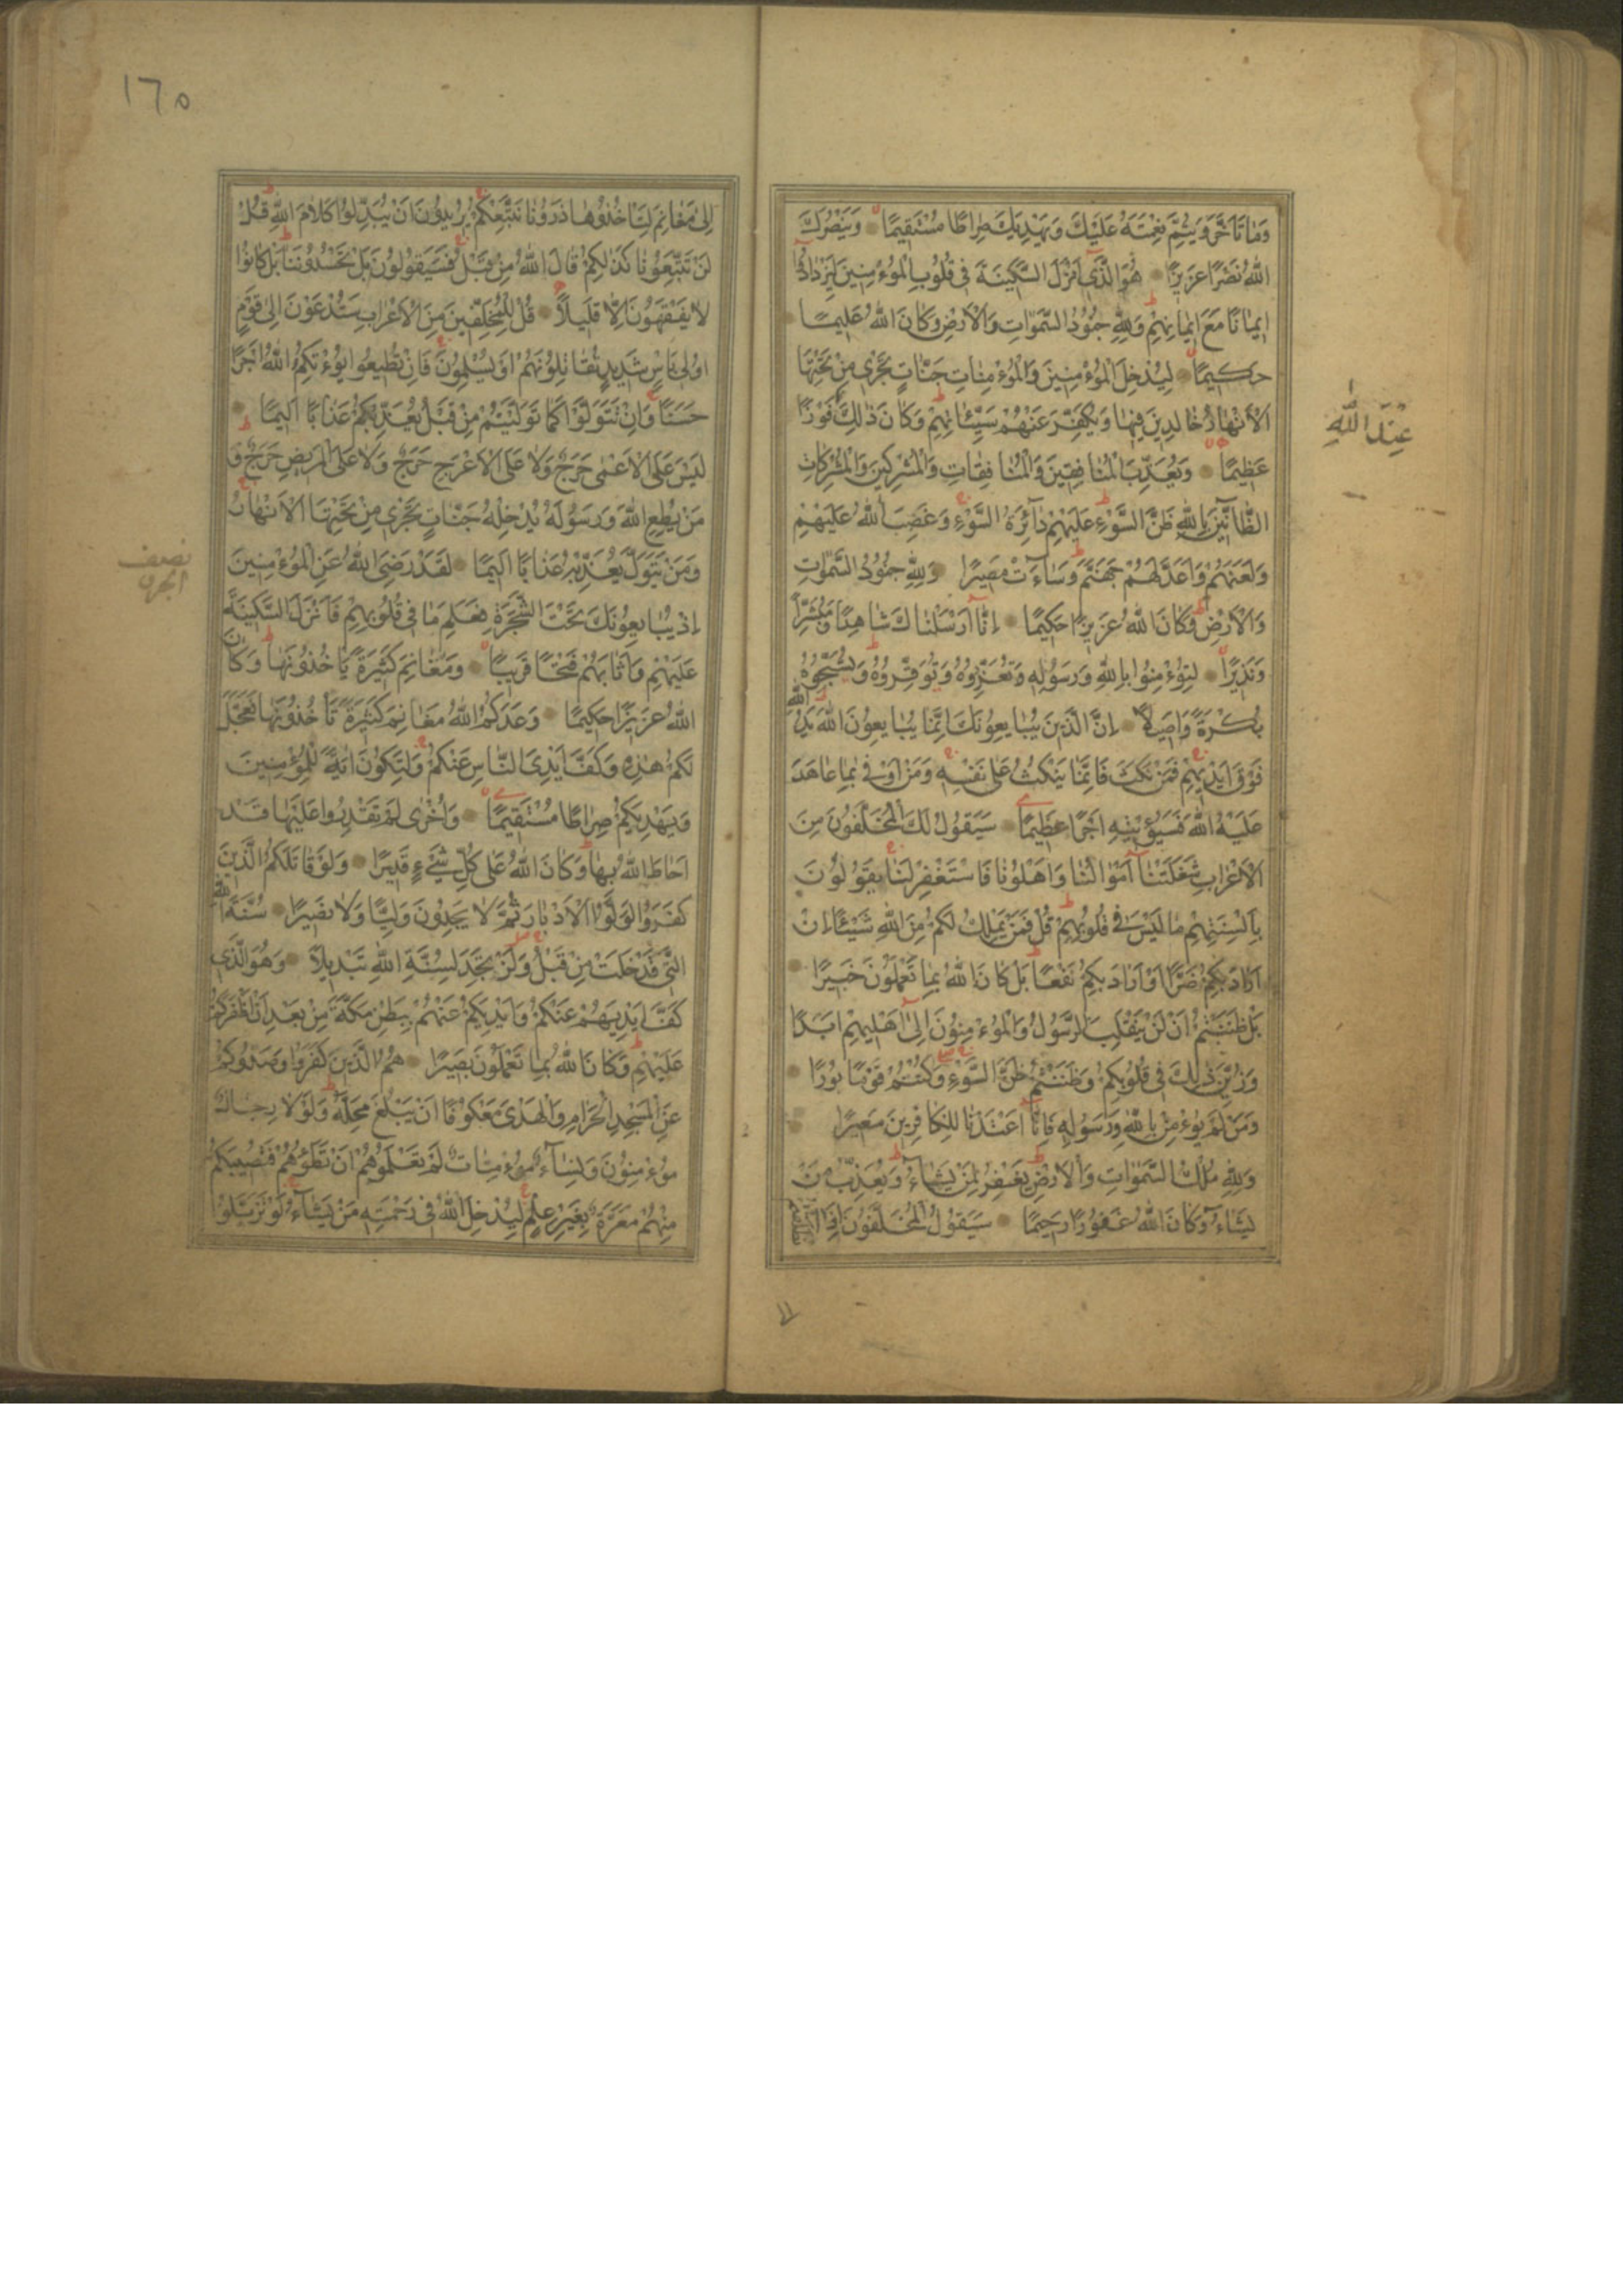 وَمَا تَاَخَّرَ وَيُتِمَّ نِعْمَتَهُ عَلَيْكَ وَيَهْدِيَكَ صِرَاطًا مُسْتَقِيمًا وَيَنْصُرَكَ
اللّٰهُ نَصْرًا عَزِيزًا هُوَ الَّذٖٓى اَنْزَلَ السَّكِينَةَ فِى قُلُوبِ الْمُوءْمِنِينَ لِيَزْدَادُٓوا
اِيمَانًا مَعَ اِيمَانِهِمْ وَلِلّٰهِ جُنُودُ السَّمٰوَاتِ وَالْاَرْضِ وَكَانَ اللّٰهُ عَلِيمًا
حَكِيمًا لِيُدْخِلَ الْمُوءْمِنِينَ وَالْمُوءْمِنَاتِ جَنَّاتٍ تَجْرِى مِنْ تَحْتِهَا
الْاَنْهَارُ خَالِدِينَ فِيهَا وَيُكَفِّرَ عَنْهُمْ سَيِّئَاتِهِمْ وَكَانَ ذٰلِكَ فَوْزًا
عَظِيمًا وَيُعَذِّبَ الْمُنَافِقِينَ وَالْمُنَافِقَاتِ وَالْمُشْرِكِينَ وَالْمُشْرِكَاتِ
الظَّانِّينَ بِاللّٰهِ ظَنَّ السَّوْءِ عَلَيْهِمْ دَآئِرَةُ السَّوْءِ وَغَضِبَ اللّٰهُ عَلَيْهِمْ
وَلَعَنَهُمْ وَاَعَدَّ لَهُمْ جَهَنَّمَ وَسَآءَتْ مَصِيرًا وَلِلّٰهِ جُنُودُ السَّمٰوَاتِ
وَالْاَرْضِ وَكَانَ اللّٰهُ عَزِيزًا حَكِيمًا اِنَّٓا اَرْسَلْنَاكَ شَاهِدًا وَمُبَشِّرًا
وَنَذِيرًا لِتُوءْمِنُوا بِاللّٰهِ وَرَسُولِهِ وَتُعَزِّرُوهُ وَتُوَقِّرُوهُ وَتُسَبِّحُوهُ
بُكْرَةً وَاَصِيلًا اِنَّ الَّذِينَ يُبَايِعُونَكَ اِنَّمَا يُبَايِعُونَ اللّٰهَ يَدُ اللّٰهِ
فَوْقَ اَيْدِيهِمْ فَمَنْ نَكَثَ فَاِنَّمَا يَنْكُثُ عَلٰى نَفْسِهِ وَمَنْ اَوْفٰى بِمَا عَاهَدَ
عَلَيْهُ اللّٰهَ فَسَيُؤْتِيهِ اَجْرًا عَظِيمًا سَيَقُولُ لَكَ الْمُخَلَّفُونَ مِنَ
الْاَعْرَابِ شَغَلَتْنَٓا اَمْوَالُنَا وَاَهْلُونَا فَاسْتَغْفِرْ لَنَا يَقُولُونَ
بِاَلْسِنَتِهِمْ مَا لَيْسَ فِى قُلُوبِهِمْ قُلْ فَمَنْ يَمْلِكُ لَكُمْ مِنَ اللّٰهِ شَيْئًا اِنْ
اَرَادَ بِكُمْ ضَرًّا اَوْ اَرَادَ بِكُمْ نَفْعًا بَلْ كَانَ اللّٰهُ بِمَا تَعْمَلُونَ خَبِيرًا
بَلْ ظَنَنْتُمْ اَنْ لَنْ يَنْقَلِبَ الرَّسُولُ وَالْمُوءْمِنُونَ اِلٰٓى اَهْلِيهِمْ اَبَدًا
وَزُيِّنَ ذٰلِكَ فِى قُلُوبِكُمْ وَظَنَنْتُمْ ظَنَّ السَّوْءِ وَكُنْتُمْ قَوْمًا بُورًا
وَمَنْ لَمْ يُوءْمِنْ بِاللّٰهِ وَرَسُولِهِ فَاِنَّٓا اَعْتَدْنَا لِلْكَافِرِينَ سَعِيرًا
وَلِلّٰهِ مُلْكُ السَّمٰوَاتِ وَالْاَرْضِ يَغْفِرُ لِمَنْ يَشَآءُ وَيُعَذِّبُ مَنْ
يَشَآءُ وَكَانَ اللّٰهُ غَفُورًا رَحِيمًا سَيَقُولُ الْمُخَلَّفُونَ اِذَا انْطَلَقْتُمْ
عِنْدَ اللّٰهِ
١٦٥
اِلٰى مَغَانِمَ لِتَاْخُذُوهَا ذَرُونَا نَتَّبِعْكُمْ يُرِيدُونَ اَنْ يُبَدِّلُوا كَلَامَ اللّٰهِ قُلْ
لَنْ تَتَّبِعُونَا كَذٰلِكُمْ قَالَ اللّٰهُ مِنْ قَبْلُ فَسَيَقُولُونَ بَلْ تَحْسُدُونَنَا بَلْ كَانُوا
لَا يَفْقَهُونَ اِلَّا قَلِيلًا قُلْ لِلْمُخَلَّفِينَ مِنَ الْاَعْرَابِ سَتُدْعَوْنَ اِلٰى قَوْمٍ
اُولِى بَاْسٍ شَدِيدٍ تُقَاتِلُونَهُمْ اَوْ يُسْلِمُونَ فَاِنْ تُطِيعُوا يُوءْتِكُمُ اللّٰهُ اَجْرًا
حَسَنًا وَاِنْ تَتَوَلَّوْا كَمَا تَوَلَّيْتُمْ مِنْ قَبْلُ يُعَذِّبْكُمْ عَذَابًا اَلِيمًا
لَيْسَ عَلَى الْاَعْمٰى حَرَجٌ وَلَا عَلَى الْاَعْرَجِ حَرَجٌ وَلَا عَلَى الْمَرِيضِ حَرَجٌ وَ
مَنْ يُطِعِ اللّٰهَ وَرَسُولَهُ يُدْخِلْهُ جَنَّاتٍ تَجْرِى مِنْ تَحْتِهَا الْاَنْهَارُ
وَمَنْ يَتَوَلَّ يُعَذِّبْهُ عَذَابًا اَلِيمًا لَقَدْ رَضِىَ اللّٰهُ عَنِ الْمُوءْمِنِينَ
اِذْ يُبَايِعُونَكَ تَحْتَ الشَّجَرَةِ فَعَلِمَ مَا فِى قُلُوبِهِمْ فَاَنْزَلَ السَّكِينَةَ
عَلَيْهِمْ وَاَثَابَهُمْ فَتْحًا قَرِيبًا وَمَغَانِمَ كَثِيرَةً يَاْخُذُونَهَا وَكَانَ
اللّٰهُ عَزِيزًا حَكِيمًا وَعَدَكُمُ اللّٰهُ مَغَانِمَ كَثِيرَةً تَاْخُذُونَهَا فَعَجَّلَ
لَكُمْ هٰذِهِ وَكَفَّ اَيْدِىَ النَّاسِ عَنْكُمْ وَلِتَكُونَ اٰيَةً لِلْمُؤْمِنِينَ
وَيَهْدِيَكُمْ صِرَاطًا مُسْتَقِيمًا وَاُخْرٰى لَمْ تَقْدِرُوا عَلَيْهَا قَدْ
اَحَاطَ اللّٰهُ بِهَا وَكَانَ اللّٰهُ عَلٰى كُلِّ شَىْءٍ قَدِيرًا وَلَوْ قَاتَلَكُمُ الَّذِينَ
كَفَرُوا لَوَلَّوُا الْاَدْبَارَ ثُمَّ لَا يَجِدُونَ وَلِيًّا وَلَا نَصِيرًا سُنَّةَ اللّٰهِ
الَّتِى قَدْ خَلَتْ مِنْ قَبْلُ وَلَنْ تَجِدَ لِسُنَّةِ اللّٰهِ تَبْدِيلًا وَهُوَ الَّذِى
كَفَّ اَيْدِيَهُمْ عَنْكُمْ وَاَيْدِيَكُمْ عَنْهُمْ بِبَطْنِ مَكَّةَ مِنْ بَعْدِ اَنْ اَظْفَرَكُمْ
عَلَيْهِمْ وَكَانَ اللّٰهُ بِمَا تَعْمَلُونَ بَصِيرًا هُمُ الَّذِينَ كَفَرُوا وَصَدُّوكُمْ
عَنِ الْمَسْجِدِ الْحَرَامِ وَالْهَدْىَ مَعْكُوفًا اَنْ يَبْلُغَ مَحِلَّهُ وَلَوْلَا رِجَالٌ
مُوءْمِنُونَ وَنِسَآءٌ مُوءْمِنَاتٌ لَمْ تَعْلَمُوهُمْ اَنْ تَطَؤُهُمْ فَتُصِيبَكُمْ
مِنْهُمْ مَعَرَّةٌ بِغَيْرِ عِلْمٍ لِيُدْخِلَ اللّٰهُ فِى رَحْمَتِهِ مَنْ يَشَآءُ لَوْ تَزَيَّلُوا
نصف
الجزء